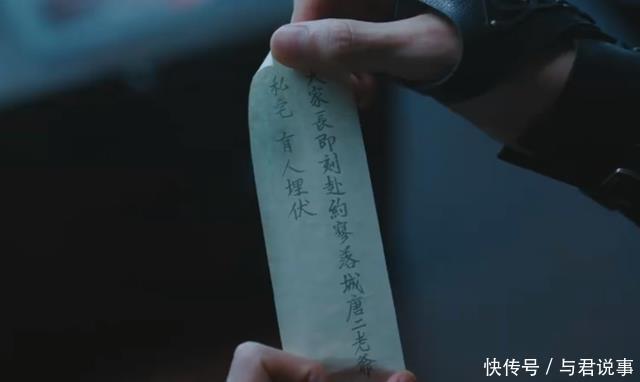 大家長即刻赴約寥落城唐二老爺
私宅 有人埋伏
快传号 / 与君说事